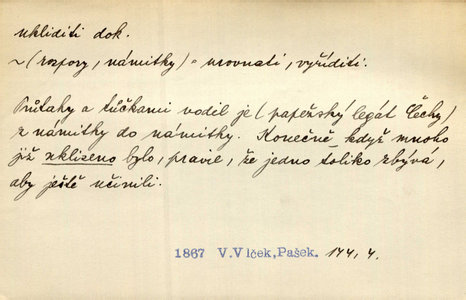 ukliditi dok.
~ (rozpory, námitky) = urovnati, vyříditi.
Průtahy a tůčkami vodil je (papežský legát Čechy)
z námitky do námitky. Konečně, když mnoho
již uklizeno bylo, pravil, že jedno toliko zbývá,
aby ještě učinili.
1867 V.Vlček,Pašek. 174, 4.